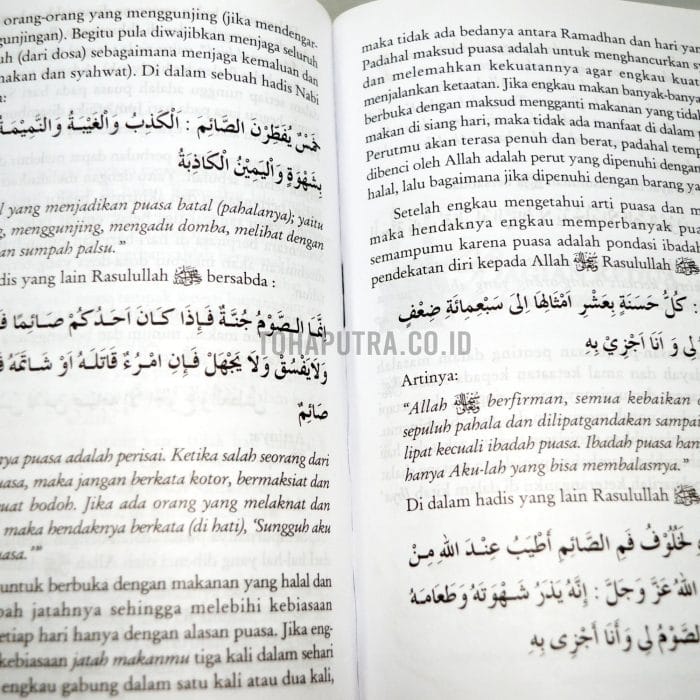 orang-orang yang menggunjing (jika mendengar-
gunjingan). Begitu pula diwajibkan menjaga seluruh
uh (dari dosa) sebagaimana menjaga kemaluan dan
makan dan syahwat). Di dalam sebuah hadis Nabi
a:
خَمْسٌ يُفَطِّرْنَ الصَّائِمَ : اَلْكَذِبُ وَالْغَيْبَةُ وَالنَّمِيْمَةُ
بِشَهْوَةٍ وَالْيَمِيْنُ الْكَاذِبَةُ
al yang menjadikan puasa batal (pahalanya); yaitu
g, menggunjing, mengadu domba, melihat dengan
an sumpah palsu."
dis yang lain Rasulullah ﷺ bersabda :
إِنَّمَا الصَّوْمُ جُنَّةٌ فَإِذَا كَانَ أَحَدُكُمْ صَائِمًا فَ
وَلَايَفْسُقْ وَلَا يَجْهَلْ فَإِنِ امْرُءٌ قَاتَلَهُ اَوْ شَاتَمَهُ فَ
صَائِمٌ
nya puasa adalah perisai. Ketika salah seorang dari
uasa, maka jangan berkata kotor, bermaksiat dan
uat bodoh. Jika ada orang yang melaknat dan
maka hendaknya berkata (di hati), 'Sungguh aku
uasa.'"
untuk berbuka dengan makanan yang halal dan
bah jatahnya sehingga melebihi kebiasaan
etiap hari hanya dengan alasan puasa. Jika eng-
kebiasaan jatah makanmu tiga kali dalam sehari
engkau gabung dalam satu kali atau dua kali,
maka tidak ada bedanya antara Ramadhan dan hari yan
Padahal maksud puasa adalah untuk menghancurkan sy
dan melemahkan kekuatannya agar engkau kuat
menjalankan ketaatan. Jika engkau makan banyak-banya
berbuka dengan maksud mengganti makanan yang tidak
makan di siang hari, maka tidak ada manfaat di dalam
Perutmu akan terasa penuh dan berat, padahal temp
dibenci oleh Allah adalah perut yang dipenuhi dengan
halal, lalu bagaimana jika dipenuhi dengan barang ya
Setelah engkau mengetahui arti puasa dan
maka hendaknya engkau memperbanyak pua
semampumu karena puasa adalah pondasi ibadah
pendekatan diri kepada Allah ﷻ Rasulullah ﷺ
: كُلُّ حَسَنَةٍ بِعَشْرِ اَمْثَالِهَا اِلَى سَبْعِمِائَةِ ضِعْفٍ
لِي وَ اَنَا اَجْزِيْ بِهِ
Artinya:
"Allah ﷻ berfirman, semua kebaikan
sepuluh pahala dan dilipatgandakan sampai
lipat kecuali ibadah puasa. Ibadah puasa han
hanya Aku-lah yang bisa membalasnya."
Di dalam hadis yang lain Rasulullah ﷺ
لَخُلُوْفُ فَمِ الصَّائِمِ أَطْيَبُ عِنْدَ اللهِ مِنْ
اللهُ عَزَّ وَجَلَّ : إِنَّهُ يَذَرُ شَهْوَتَهُ وَطَعَامَهُ
الصَّوْمُ لِي وَأَنَا أَجْزِى بِهِ
TOHAPUTRA.CO.ID